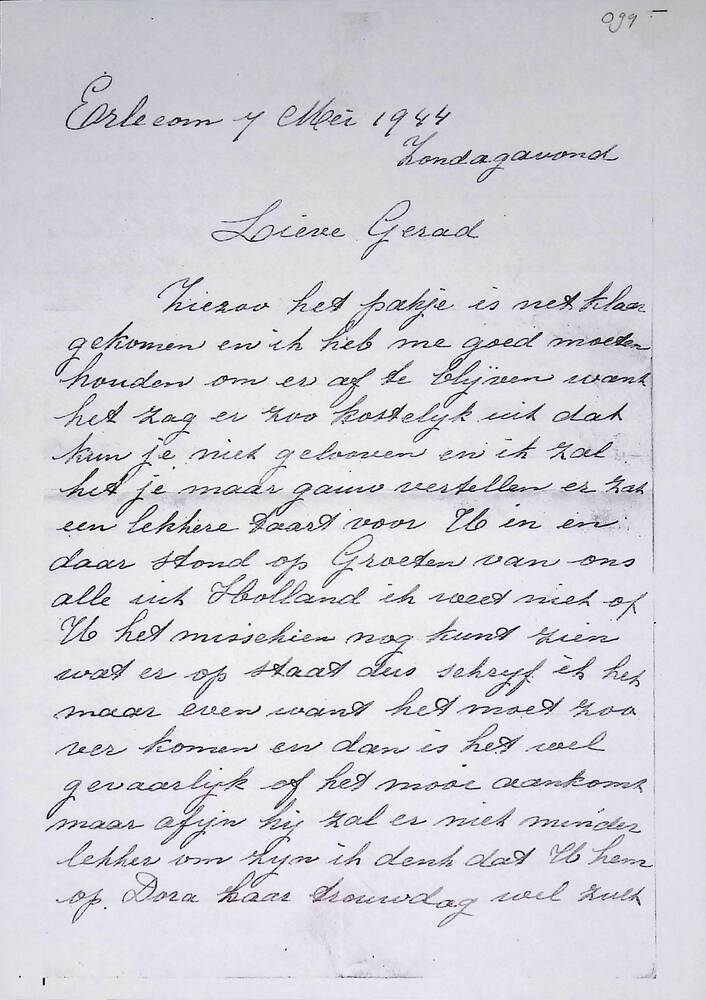 099
Erlecom 7 Mei 1944
Zondagavond
Lieve Gerad
Ziezoo het pakje is net klaar
gekomen en ik heb me goed moeten
houden om er af te blijven want
het zag er zoo kostelijk uit dat
kun je niet gelooven en ik zal
het je maar gauw vertellen er zat
een lekkere taart voor U in en
daar stond op Groeten van ons
alle uit Holland ik weet niet of
U het misschien nog kunt zien
wat er op staat dus schryf ik het
maar even want het moet zoo
ver komen en dan is het wel
gevaarlijk of het mooi aankomt
maar afijn hij zal er niet minder
lekker om zyn ik denk dat U hem
op Dora haar trouwdag wel zult